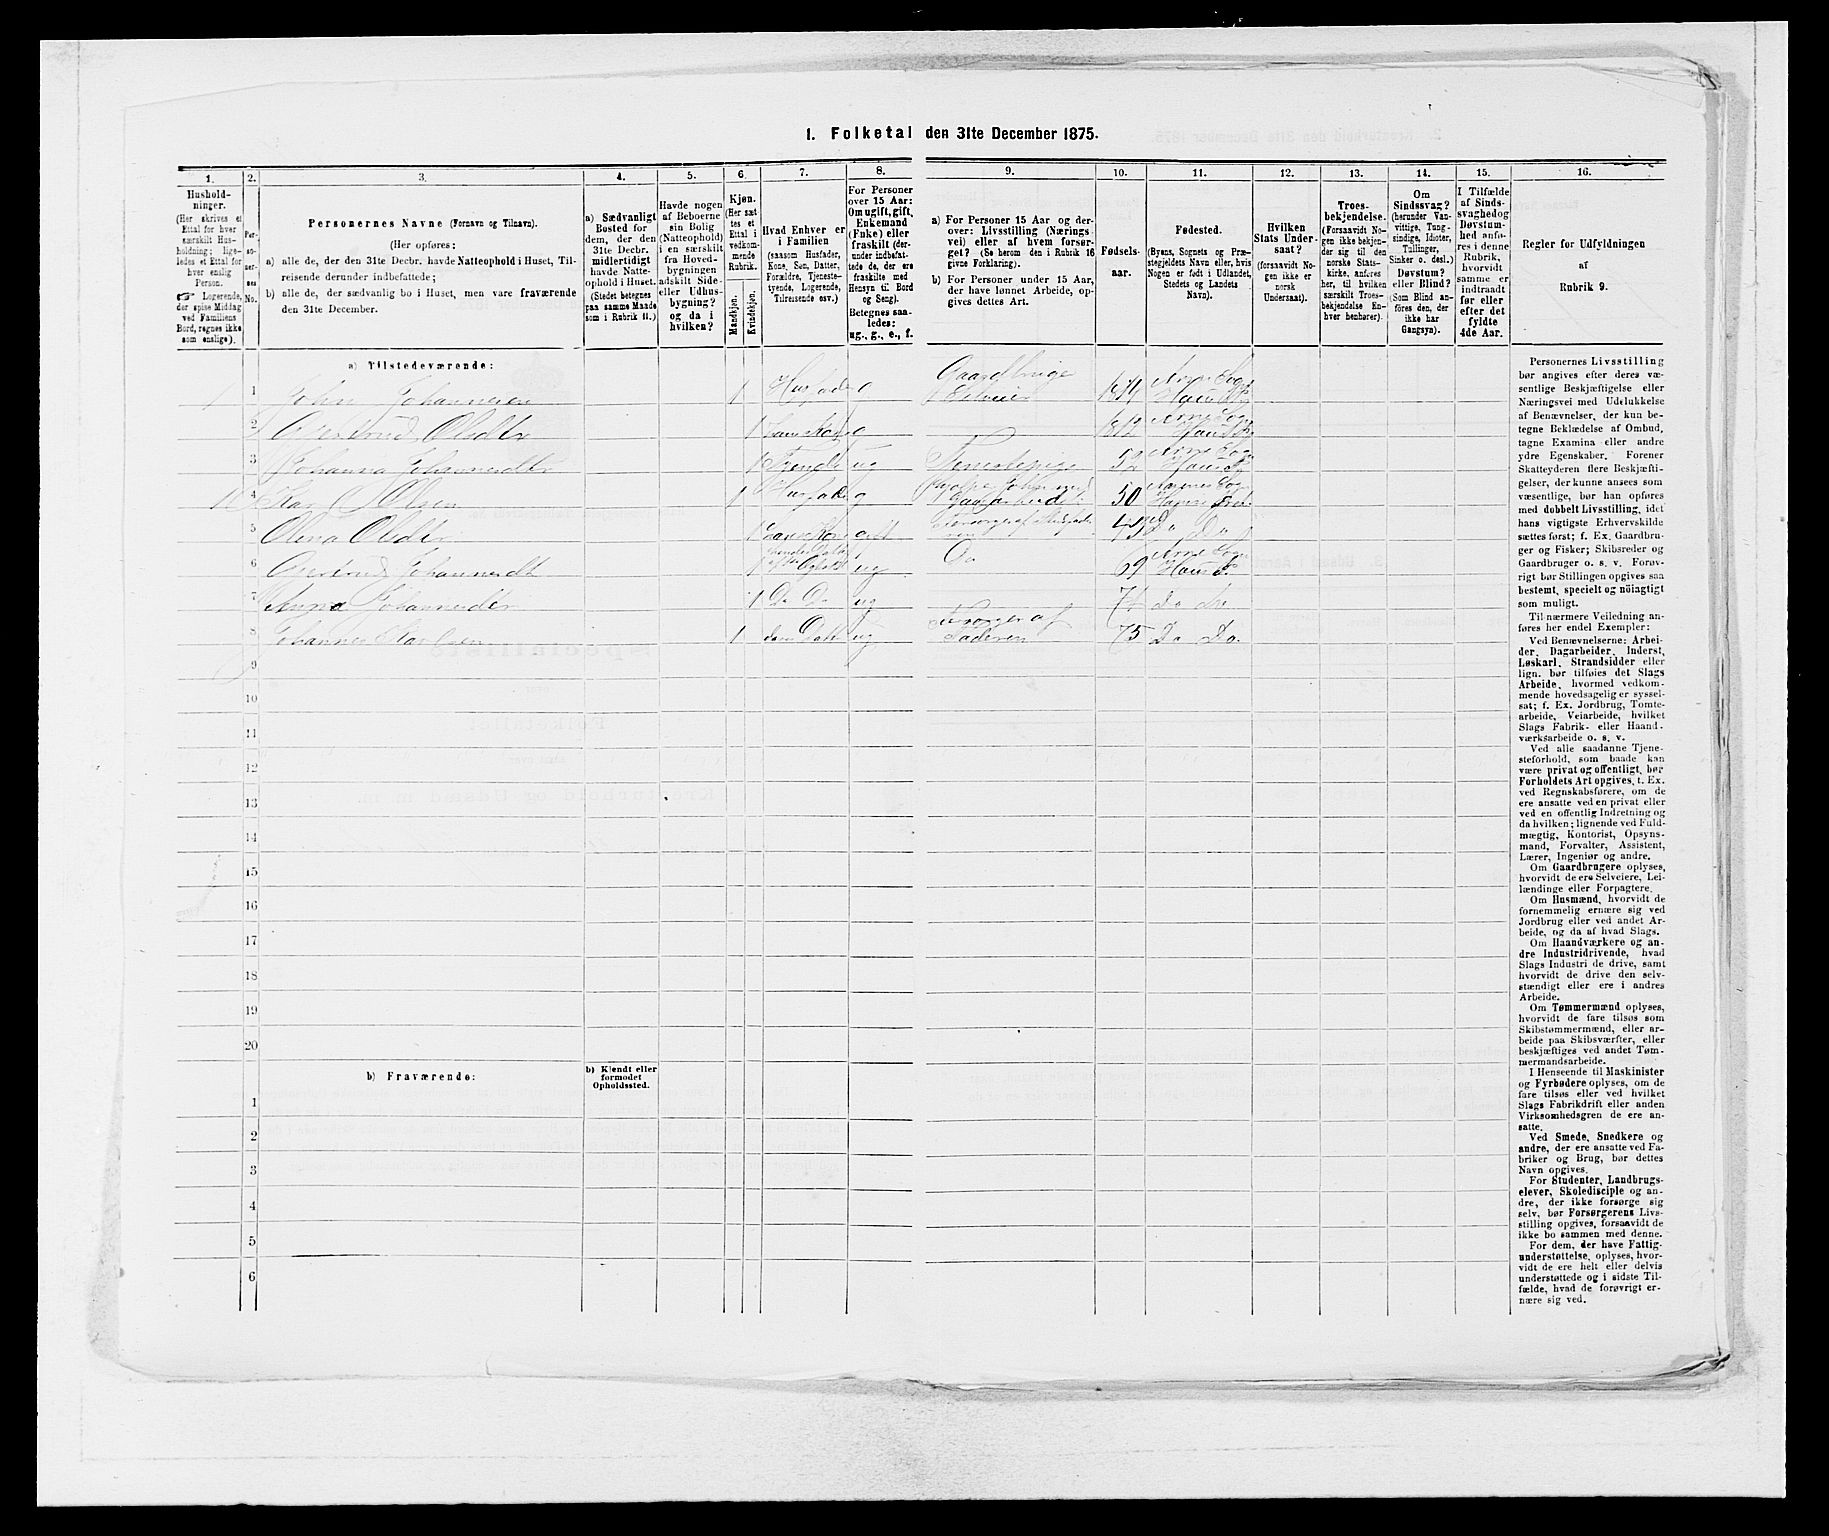 1. Folketal den 31te December 1875.
1.
Hushold-
ninger.
(Her skrives et
Ettal for hver
særskilt Hus-
holdning; lige-
ledes et Ettal for
hver enslig
Person.
☞ Logerende,
der spise Middag
ved Familiens
Bord, regnes ikke
som enslige).
2.
Per-
so-
ner-
nes
No.
3.
Personernes Navne (Fornavn og Tilnavn).
(Her opføres:
a) alle de, der den 31te Decbr. havde Natteophold i Huset, Til-
reisende derunder indbefattede;
b) alle de, der sædvanlig bo i Huset, men vare fraværende
den 31te December.
4.
a) Sædvanligt
Bosted for
dem, der den
31te Decbr.
midlertidigt
havde Natte-
ophold i Huset.
(Stedet betegnes
paa samme Maade
som i Rubrik 11.)
5.
Havde nogen
af Beboerne
sin Bolig
(Natteophold)
i en særskilt
fra Hoved-
bygningen
adskilt Side-
eller Udhus-
bygning?
og da i
hvilken?
6.
Kjøn.
(Her sæt-
tes et
Ettal i
vedkom-
mende
Rubrik.
Mandkjøn.
Kvindekjøn.
7.
Hvad Enhver er
i Familien
(saasom Husfader,
Kone, Søn, Datter,
Forældre, Tjeneste-
tyende, Logerende,
Tilreisende osv.)
8.
For Personer
over 15 Aar:
Om ugift, gift,
Enkemand
(Enke) eller
fraskilt (der-
under indbefat-
tede de, der ere
fraskilte med
Hensyn til Bord
og Seng).
Betegnes saa-
ledes:
ug., g., e., f.
9.
a) For Personer 15 Aar og der-
over: Livsstilling (Nærings-
vei) eller af hvem forsør-
get? (Se herom den i Rubrik 16
givne Forklaring).
b) For Personer under 15 Aar,
der have lønnet Arbeide, op-
gives dettes Art.
10.
Fødsels-
aar.
11.
Fødested.
(Byens, Sognets og Præ-
stegjeldets Navn eller, hvis
Nogen er født i Udlandet,
Stedets og Landets
Navn).
12.
Hvilken
Stats Under-
saat?
(forsaavidt No-
gen ikke er
norsk
Undersaat).
13.
Troes-
bekjendelse.
(Forsaavidt No-
gen ikke bekjen-
der sig til den
norske Stats-
kirke, anføres
her, til hvilken
særskilt Troes-
bekjendelse En-
hver henhører).
14.
Om
Sindssvag?
(herunder Van-
vittige, Tung-
sindige, Idioter,
Tullinger,
Sinker o. desl.)
Døvstum?
eller Blind?
(Som Blind an-
føres den, der
ikke har
Gangsyn).
15.
I Tilfælde
af Sinds-
svaghed og
Døvstum-
hed anfø-
res i denne
Rubrik,
hvorvidt
samme er
indtraadt
før eller
efter det
fyldte
4de Aar.
16.
Regler for Udfyldningen
af
Rubrik 9.
a) Tilstedeværende:
1 1 John Johannesen 1 Husfader g Gaardbruger Selveier 1814 Arne Sogn Haus
2 Gjertrud Olsdtr 1 hans Kone g 1812 Arne Sogn Haus
3 Johanna Johannesdtr 1 ug Tjenestepige 52 Arne Sogn Haus
4 Olsen 1 Husfader g Gaardarbeide 50 Sogn
5 Olena Olsdtr 1 hans Kone Forsørges af 45 Do Do
6 Gjertrud Johannesdtr 1 ug Do 69 Arne Sogn Haus
7 Anna Johannesdtr 1 Do Do ug 71 Do
8 Johannes 1 ug Forsørges af Faderen 75 Do Do
9
10
11
12
13
14
15
16
17
18
19
20
b) Fraværende:
b) Kjendt eller
formodet
Opholdssted.
1
2
3
4
5
6
Personernes Livsstilling
bør angives efter deres væ-
sentlige Beskjæftigelse eller
Næringsvei med Udelukkelse
af Benævnelser, der kun be-
tegne Beklædelse af Ombud,
tagne Examina eller andre
ydre Egenskaber. Forener
Skatteyderen flere Beskjæfti-
gelser, der kunne ansees som
væsentlige, bør han opføres
med dobbelt Livsstilling, idet
hans vigtigste Erhvervskilde
sættes først; f. Ex. Gaardbru-
ger og Fisker; Skibsreder og
Gaardbruger o. s. v. Forøv-
rigt bør Stillingen opgives saa
bestemt, specielt og nöiagtigt
som muligt.
Til nærmere Veiledning an-
føres her endel Exempler:
Ved Benævnelserne: Arbei-
der, Dagarbeider, Inderst,
Løskarl, Strandsidder eller
lign. bør tilføies det Slags
Arbeide, hvormed vedkom-
mende hovedsagelig er syssel-
sat; f. Ex. Jordbrug, Tomte-
arbeide, Veiarbeide, hvilket
Slags Fabrik- eller Haand-
værksarbeide o. s. v.
Ved alle saadanne Tjene-
steforhold, som baade kan
være privat og offentligt, bør
Forholdets Art opgives, t. Ex.
ved Regnskabsførere, om de
ere ansatte ved en privat eller
ved en offentlig Indretning og
da hvilken; lignende ved Fuld-
mægtig, Kontorist, Opsyns-
mand, Forvalter, Assistent,
Lærer, Ingeniør og andre.
Om Gaardbrugere oplyses,
hvorvidt de ere Selveiere, Lei-
lændinge eller Forpagtere.
Om Husmænd, hvorvidt de
fornemmelig ernære sig ved
Jordbrug eller ved andet Ar-
beide, og da af hvad Slags.
Om Haandværkere og an-
dre Industridrivende, hvad
Slags Industri de drive, samt
hvorvidt de drive den selv-
stændigt eller ere i andres
Arbeide.
Om Tømmermænd oplyses,
hvorvidt de fare tilsøs som
Skibstømmermænd, eller ar-
beide paa Skibsværfter, eller
beskjæftiges ved andet Tøm-
mermandsarbeide.
I Henseende til Maskinister
og Fyrbødere oplyses, om de
fare tilsøs eller ved hvilket
Slags Fabrikdrift eller anden
Virksomhedsgren de ere an-
satte.
Ved Smede, Snedkere og
andre, der ere ansatte ved Fa-
briker og Brug, bør dettes
Navn opgives.
For Studenter, Landbrugs-
elever, Skoledisciple og an-
dre, der ikke forsørge sig
selv, bør Forsørgerens Livs-
stilling opgives, forsaavidt de
ikke bo sammen med denne.
For dem, der have Fattig-
understøttelse, oplyses, hvor-
vidt de ere helt eller delvis
understøttede og i sidste Til-
fælde, hvad de forøvrigt er-
nære sig ved.